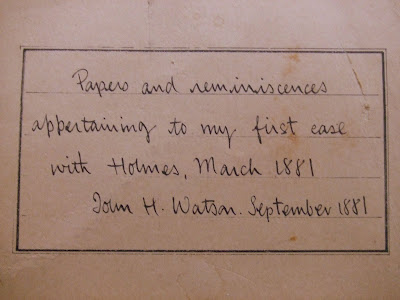 Papers and reminiscences
appertaining to my first case
with Holmes, March 1881
John H. Watson. September 1881